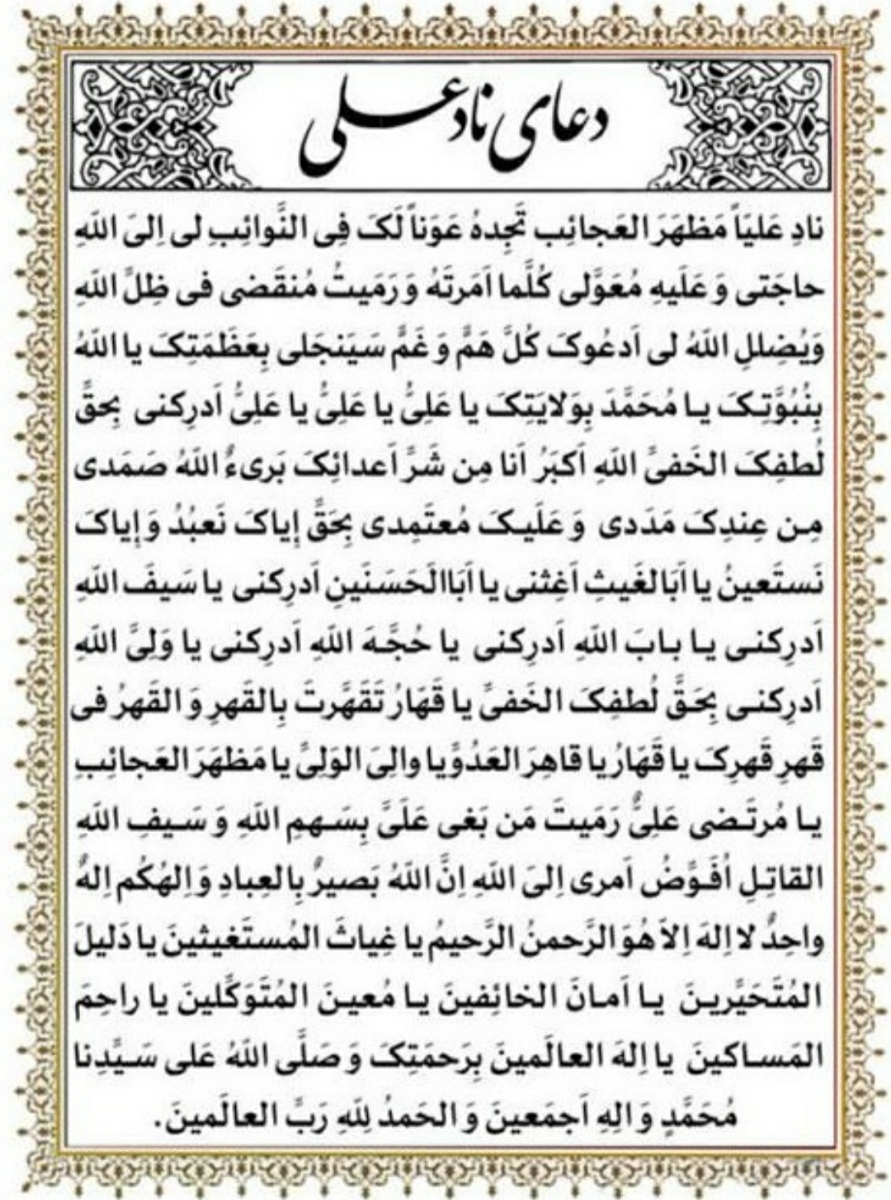 دعای ناد علی
نادِ عَلیَاً مَظهَرَ العَجائِب تَجِدهُ عَوَناً لَکَ فِی النَّوائِبِ لی اِلیَ اللهِ
حاجَتی وَ عَلَیهِ مُعَوَّلی کُلَّما اَمَرتَهُ وَ رَمَیتُ مُنقَضی فی ظِلَّ اللهِ
وَیُضِللِ اللهُ لی اَدعُوکَ کُلَّ هَمٍّ وَ غَمٍّ سَیَنجَلی بِعَظَمَتِکَ یا اللهُ
بِنُبُوَّتِکَ یا مُحَمَّدَ بِوَلایَتِکَ یا عَلِیُّ یا عَلِیُّ یا عَلِیُّ اَدرِکنی بِحَقَّ
لُطفِکَ الخَفیَّ اللهِ اَکبَرُ اَنا مِن شَرَّ اَعدائِکَ بَریءٌ اللهُ صَمَدی
مِن عِندِکَ مَدَدی وَ عَلَیکَ مُعتَمِدی بِحَقَّ إیاکَ نَعبُدُ وَ إیاکَ
نَستَعینُ یا اَبَالغَیثِ اَغِثنی یا اَبَاالَحَسَنَینِ اَدرِکنی یا سَیفَ اللهِ
اَدرِکنی یا بابَ اللهِ اَدرِکنی یا حُجَّهَ اللهِ اَدرِکنی یا وَلِیَّ اللهِ
اَدرِکنی بِحَقَّ لُطفِکَ الخَفیَّ یا قَهَارُ تَقَهَّرتَ بِالقَهرِ وَ القَهرُ فی
قَهرِ قَهرِکَ یا قَهَارُ یا قاهِرَ العَدُوَّیا والِیَ الوَلِیَّ یا مَظهَرَ العَجائِبِ
یا مُرتَضی عَلِیٌّ رَمَیتَ مَن بَغی عَلَیَّ بِسَهمِ اللهِ وَ سَیفِ اللهِ
القاتِلِ اُفَوَّضُ اَمری اِلیَ اللهِ اِنَّ اللهُ بَصیرٌ بِالعِبادِ وَ اِلهُکُم اِلهٌ
واحِدٌ لا اِلهَ اِلاَ هُوَ الرَّحمنُ الرَّحیمُ یا غِیاثَ المُستَغیثینَ یا دَلیلَ
المُتَحَیَّرینَ یا اَمانَ الخائِفینَ یا مُعینَ المُتَوَکَّلینَ یا راحِمَ
المَساکینَ یا اِلهَ العالَمینَ بِرَحمَتِکَ وَ صَلَّی اللهُ عَلی سَیَّدِنا
مُحَمَّدٍ وَ الِهِ اَجمَعینَ وَ الحَمدُ لِلّهِ رَبَّ العالَمینَ.